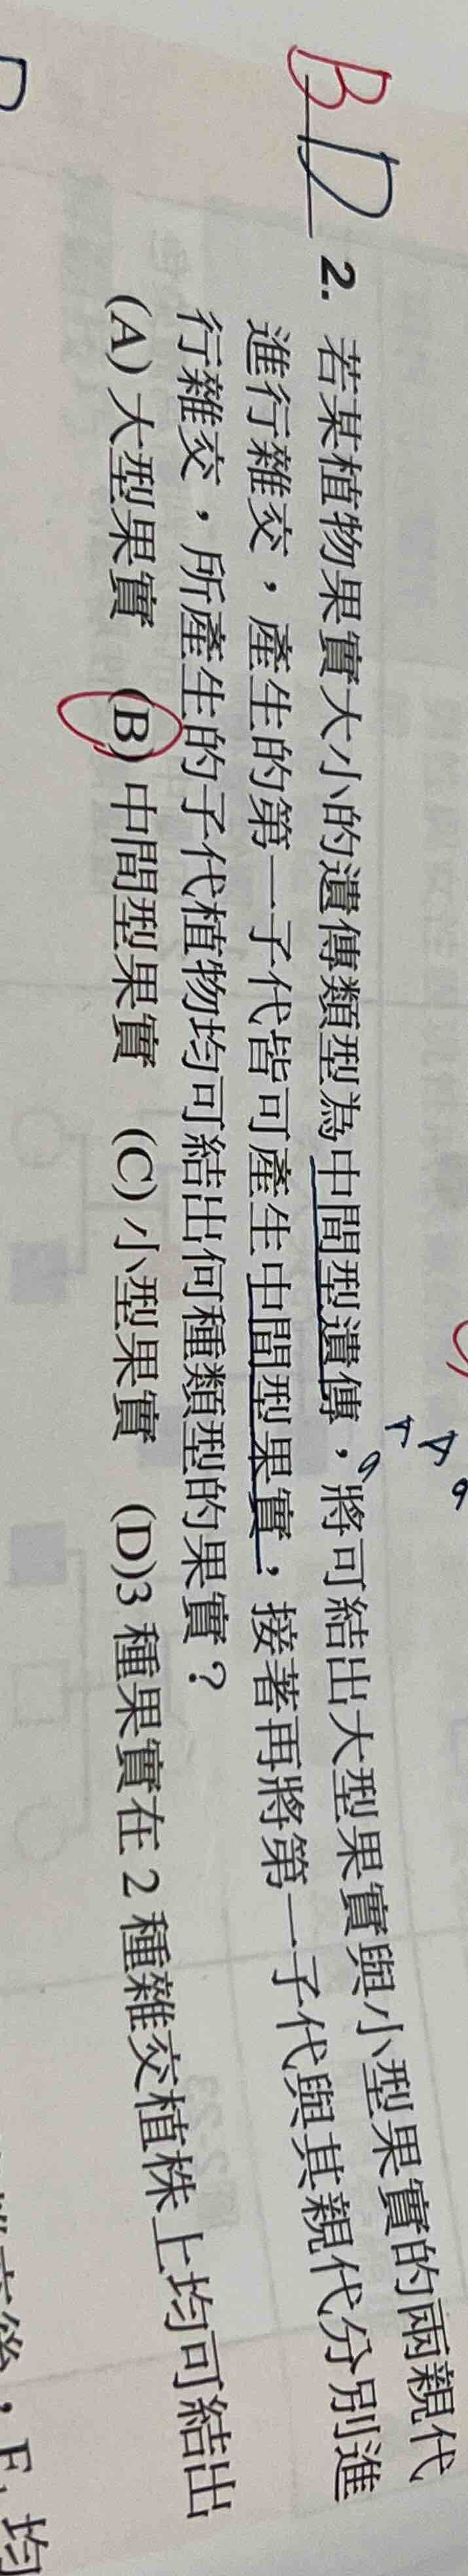 BD 2. 若某植物果實大小的遺傳類型為中間型遺傳，將可結出大型果實與小型果實的兩親代
進行雜交，產生的第一子代皆可產生中間型果實，接著再將第一子代與其親代分別進
行雜交，所產生的子代植物均可結出何種類型的果實？
(A) 大型果實 (B) 中間型果實 (C) 小型果實 (D)3 種果實在 2 種雜交植株上均可結出